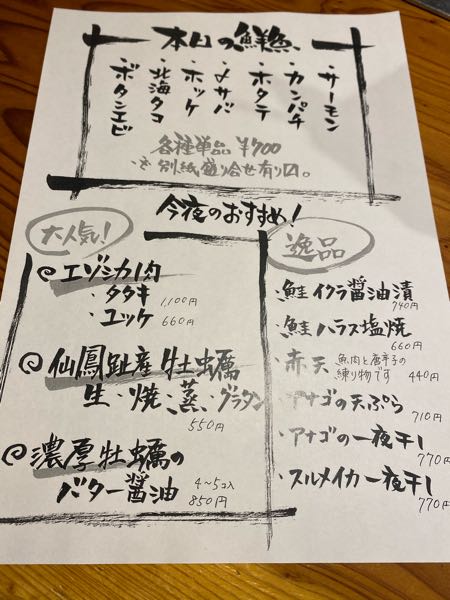 本日の鮮魚
・サーモン
・カンパチ
・ホタテ
・〆サバ
・ホッケ
・北海タコ
・ボタンエビ
各種単品 ¥700
別紙盛り合せ有り〼。
今夜のおすすめ!
大人気!
エゾシカ肉
・タタキ 1,100円
・ユッケ 660円
仙鳳趾産牡蠣
生・焼・蒸・グラタン
550円
濃厚牡蠣の
バター醤油 4~5コ入
850円
逸品
・鮭イクラ醤油漬
740円
・鮭ハラス塩焼
660円
・赤天 魚肉と唐辛子の
練り物です 440円
・アナゴの天ぷら
710円
・アナゴの一夜干し
770円
・スルメイカ一夜干し
770円